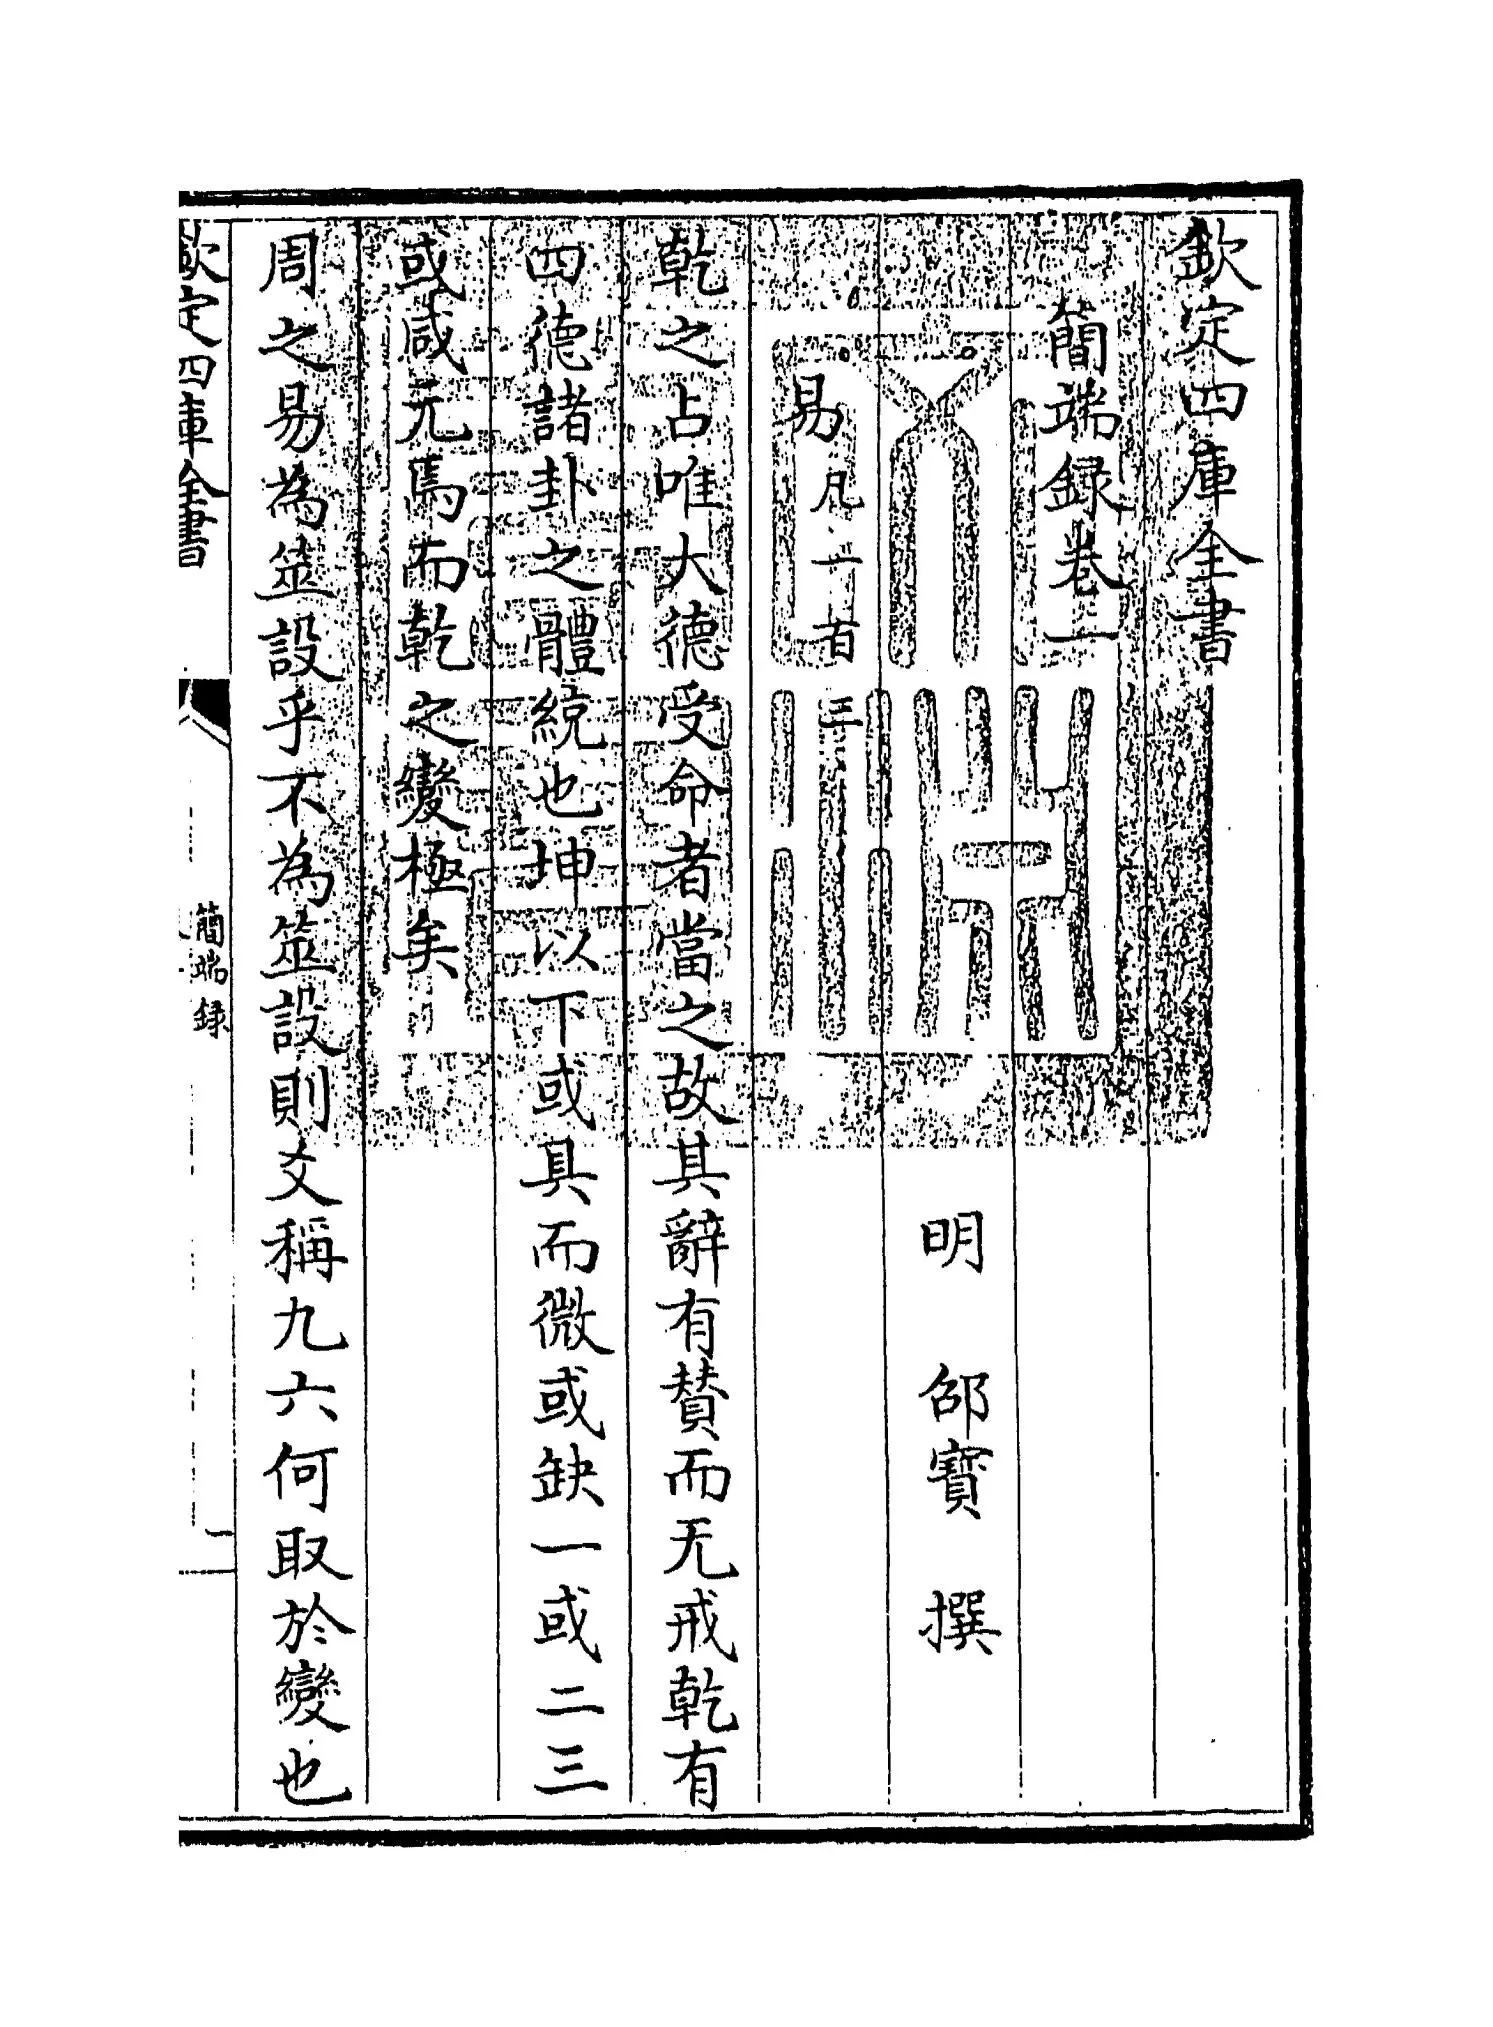 欽定四庫全書
簡端録卷一
明 邵寳 撰
易 凡一百三
乾之占唯大德受命者當之故其辭有賛而无戒乾有
四德諸卦之體統也坤以下或具而微或缺一或二三
或咸无焉而乾之變極矣
周之易為筮設乎不為筮設則爻稱九六何取於變也
欽定四庫全書
簡端録
一